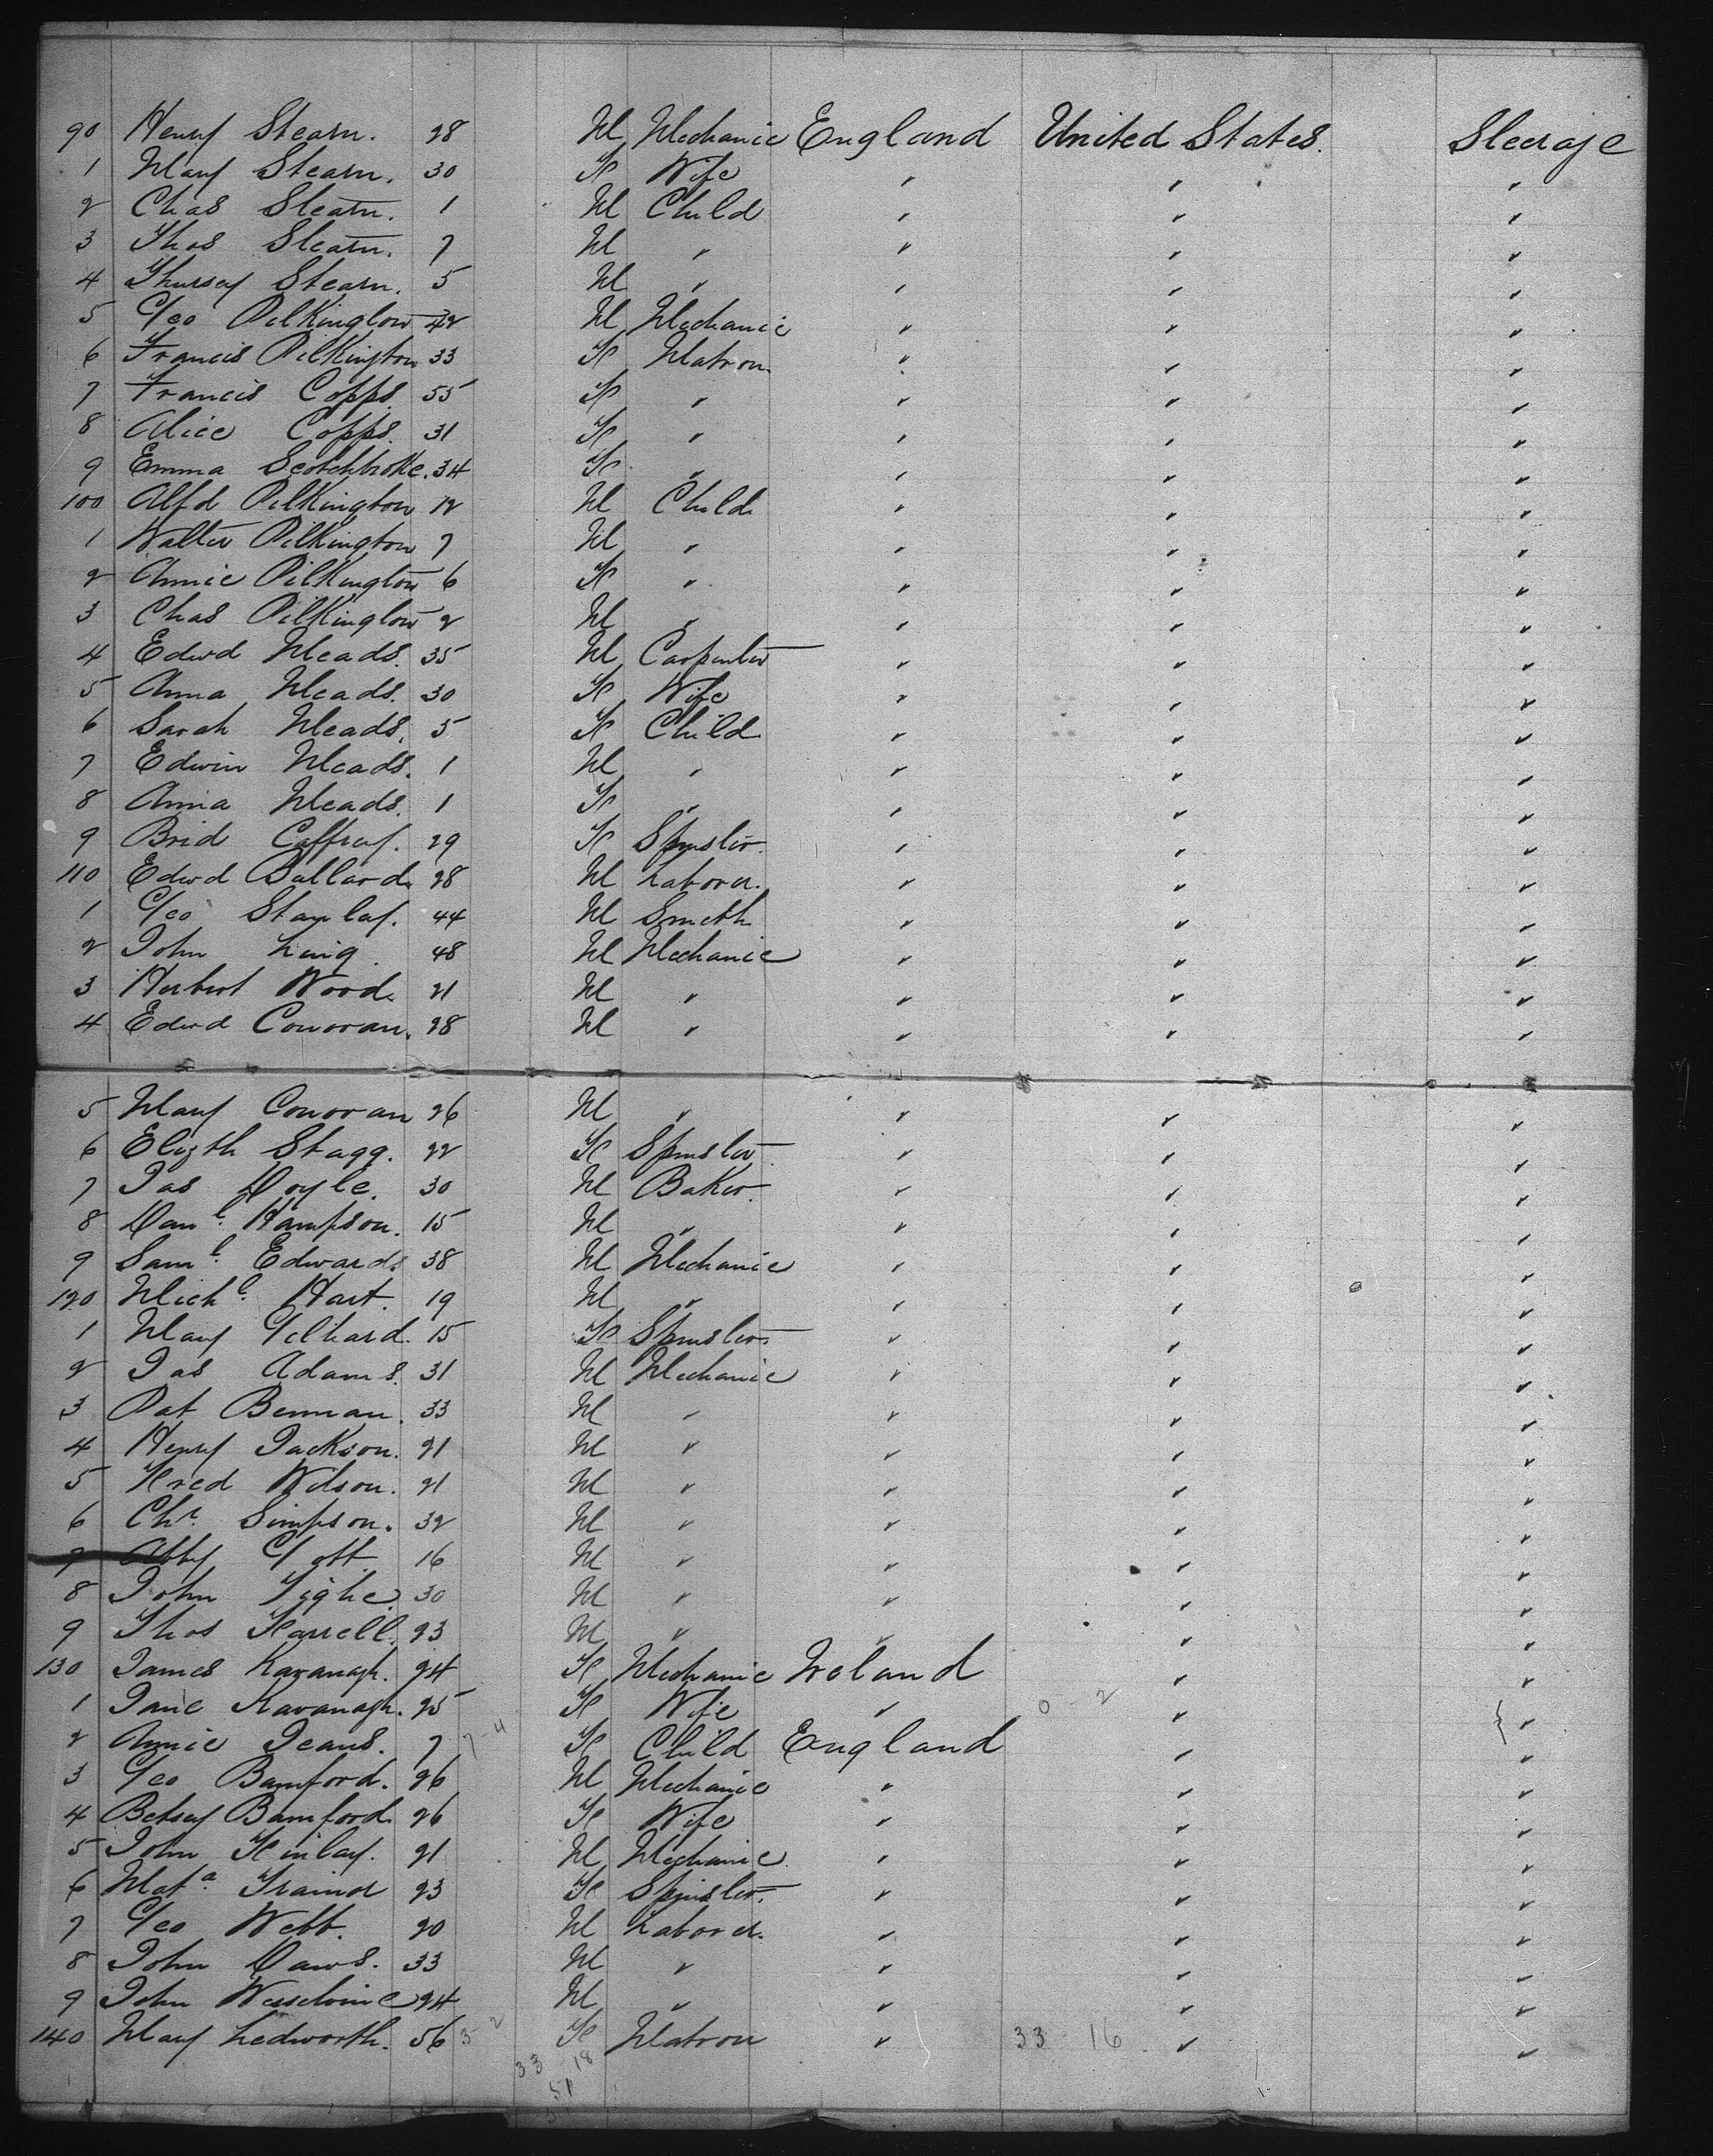 90 Henry Stearn. 28 M Mechanic England United States. Steerage
1 Mary Stearn. 30 F Wife " " "
2 Chas Stearn. 1 M Child " " "
3 Thos Stearn. 7 M " " " "
4 Thursey Stearn. 5 M " " " "
5 Geo Pilkington 42 M Mechanic " " "
6 Francis Pilkington 33 F Matron " " "
7 Francis Copps 55 F " " " "
8 Alice Copps. 31 F " " " "
9 Emma Scotchbroke. 34 F " " " "
100 Alfd Pilkington 12 M Child " " "
1 Walter Pilkington 7 M " " " "
2 Annie Pilkington 6 F " " " "
3 Chas Pilkington 2 M " " " "
4 Edwd Meads. 35 M Carpenter " " "
5 Anna Meads. 30 F Wife " " "
6 Sarah Meads. 5 F Child " " "
7 Edwin Meads. 1 M " " " "
8 Anna Meads. 1 F " " " "
9 Brid Caffray. 29 F Spinster. " " "
110 Edwd Bullard 28 M Laborer. " " "
1 Geo Stanley. 44 M Smith " " "
2 John Ling. 48 M Mechanic " " "
3 Herbert Wood. 21 M " " " "
4 Edwd Conovan. 28 M " " " "
5 Mary Conovan 26 M " " " "
6 Elizth Stagg. 22 F Spinster " " "
7 Jas Doyle. 30 M Baker. " " "
8 Danl. Hampson. 15 M " " " "
9 Saml. Edwards 38 M Mechanic " " "
120 Michl. Hart. 19 M " " " "
1 Mary Gelhard. 15 F Spinster. " " "
2 Jas Adams. 31 M Mechanic " " "
3 Pat Bennan. 33 M " " " "
4 Henry Jackson. 21 M " " " "
5 Fred Wilson. 21 M " " " "
6 Chr. Simpson. 32 M " " " "
7 Abby Gott 16 M " " " "
8 John Tighe. 30 M " " " "
9 Thos Farrell. 23 M " " " "
130 James Kavanagh. 24 F Mechanic Ireland " "
1 Jane Kavanagh. 25 F Wife " 0 2 " "
2 Annie Jeans. 7 7-4 F Child England " "
3 Geo Bamford. 26 M Mechanic " " "
4 Betsey Bamford 26 F Wife " " "
5 John Finlay. 21 M Mechanic " " "
6 Mata. Trainor 23 F Spinster. " " "
7 Geo Webb. 20 M Laborer. " " "
8 John Daws. 33 M " " " "
9 John 24 M " " " "
140 Mary Ledworth. 56 3-2 F Matron " 33 16 " "
33 18
51